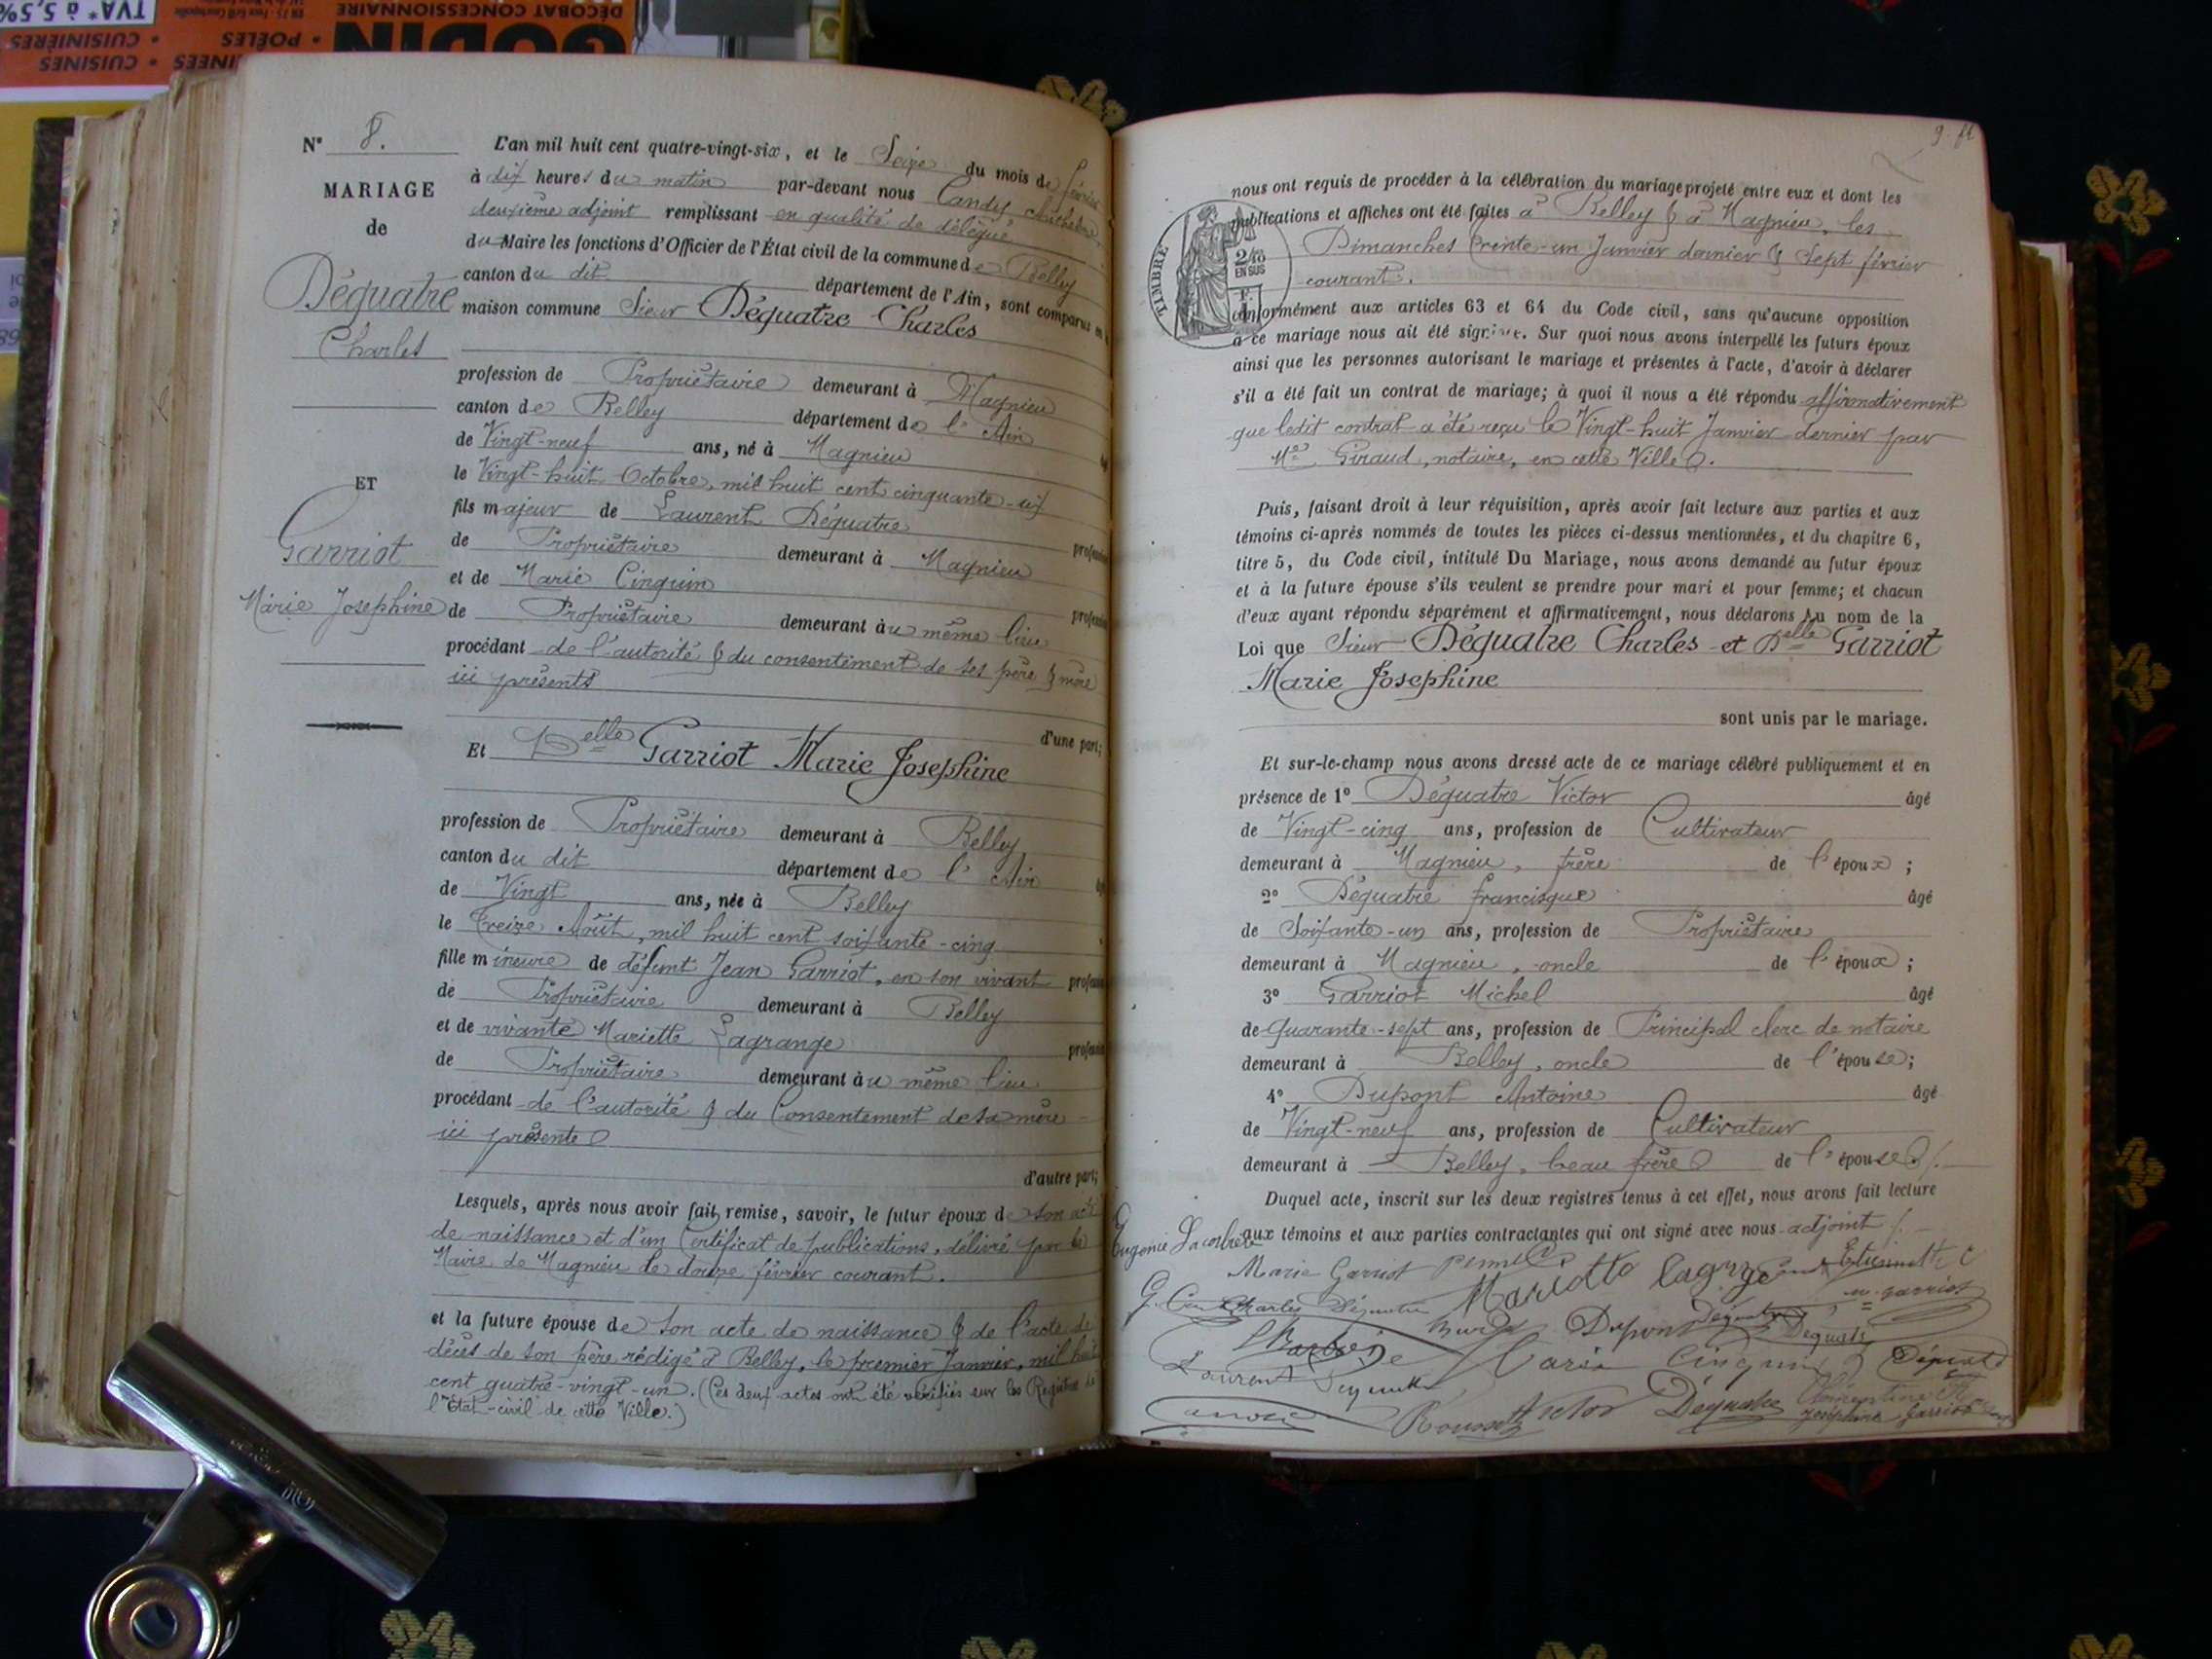 TVA* à 5,5%
CUISINIÈRES •
CUISINES •
DÉCOBAT CONCESSIONNAIRE
GODIN
• POÊLES
N° 8.
MARIAGE
de
Déquatre
Charles
ET
Garriot
Marie Josephine
L'an mil huit cent quatre-vingt-six, et le Seize du mois de février
à dix heures du matin par-devant nous
deuxième adjoint remplissant en qualité de délégué
du Maire les fonctions d'Officier de l'État civil de la commune de Belley
canton du dit département de l'Ain, sont comparus en
maison commune Sieur Déquatre Charles
profession de Propriétaire demeurant à Magnieu
canton de Belley département de l'Ain
de Vingt-neuf ans, né à Magnieu
le Vingt-huit Octobre, mil huit cent cinquante-six
fils majeur de Laurent Déquatre
de Propriétaire demeurant à Magnieu
et de Marie Cinquin
de Propriétaire demeurant au même lieu
procédant de l'autorité & du consentement de ses père & mère
ici présents
d'une part;
Et Delle Garriot Marie Josephine
profession de Propriétaire demeurant à Belley
canton du dit département de l'Ain
de Vingt ans, née à Belley
le Treize Août, mil huit cent soixante-cinq
fille mineure de défunt Jean Garriot, en son vivant
de Propriétaire demeurant à Belley
et de vivante Mariette Lagrange
de Propriétaire demeurant au même lieu
procédant de l'autorité & du Consentement de sa mère
ici présente
d'autre part;
Lesquels, après nous avoir fait remise, savoir, le futur époux de son acte
de naissance et d'un Certificat de publications, délivré par le
Maire de Magnieu le douze février courant.
et la future épouse de son acte de naissance & de l'acte de
décès de son père rédigé à Belley, le premier Janvier, mil huit
cent quatre-vingt-un. (Ces deux actes ont été vérifiés sur les Registres de
l'Etat-civil de cette Ville.)
TIMBRE
2/10
EN SUS
nous ont requis de procéder à la célébration du mariage projeté entre eux et dont les
publications et affiches ont été faites à Belley & à Magnieu, les
Dimanches trente-un Janvier dernier & Sept février
courant.
conformément aux articles 63 et 64 du Code civil, sans qu'aucune opposition
à ce mariage nous ait été signifiée. Sur quoi nous avons interpellé les futurs époux
ainsi que les personnes autorisant le mariage et présentes à l'acte, d'avoir à déclarer
s'il a été fait un contrat de mariage; à quoi il nous a été répondu affirmativement
que ledit contrat a été reçu le Vingt-huit Janvier dernier par
Me Giraud, notaire, en cette Ville.
Puis, faisant droit à leur réquisition, après avoir fait lecture aux parties et aux
témoins ci-après nommés de toutes les pièces ci-dessus mentionnées, et du chapitre 6,
titre 5, du Code civil, intitulé Du Mariage, nous avons demandé au futur époux
et à la future épouse s'ils veulent se prendre pour mari et pour femme; et chacun
d'eux ayant répondu séparément et affirmativement, nous déclarons Au nom de la
Loi que Sieur Déquatre Charles et Delle Garriot
Marie Josephine
sont unis par le mariage.
Et sur-le-champ nous avons dressé acte de ce mariage célébré publiquement et en
présence de 1° Déquatre Victor âgé
de Vingt-cinq ans, profession de Cultivateur
demeurant à Magnieu, frère de l'époux;
2° Déquatre francisque âgé
de Soixante-un ans, profession de Propriétaire
demeurant à Magnieu, oncle de l'époux;
3° Garriot Michel âgé
de Quarante-sept ans, profession de Principal clerc de notaire
demeurant à Belley, oncle de l'épouse;
4° Dupont Antoine âgé
de Vingt-neuf ans, profession de Cultivateur
demeurant à Belley, beau frère de l'épouse
Duquel acte, inscrit sur les deux registres tenus à cet effet, nous avons fait lecture
aux témoins et aux parties contractantes qui ont signé avec nous adjoint
Eugenie
Marie Garriot
Mariette Lagrange
Charles Déquatre
Dupont
Laurent Dequatre
Marie Cinquin
Rousset
Victor Déquatre
Josephine Garriot